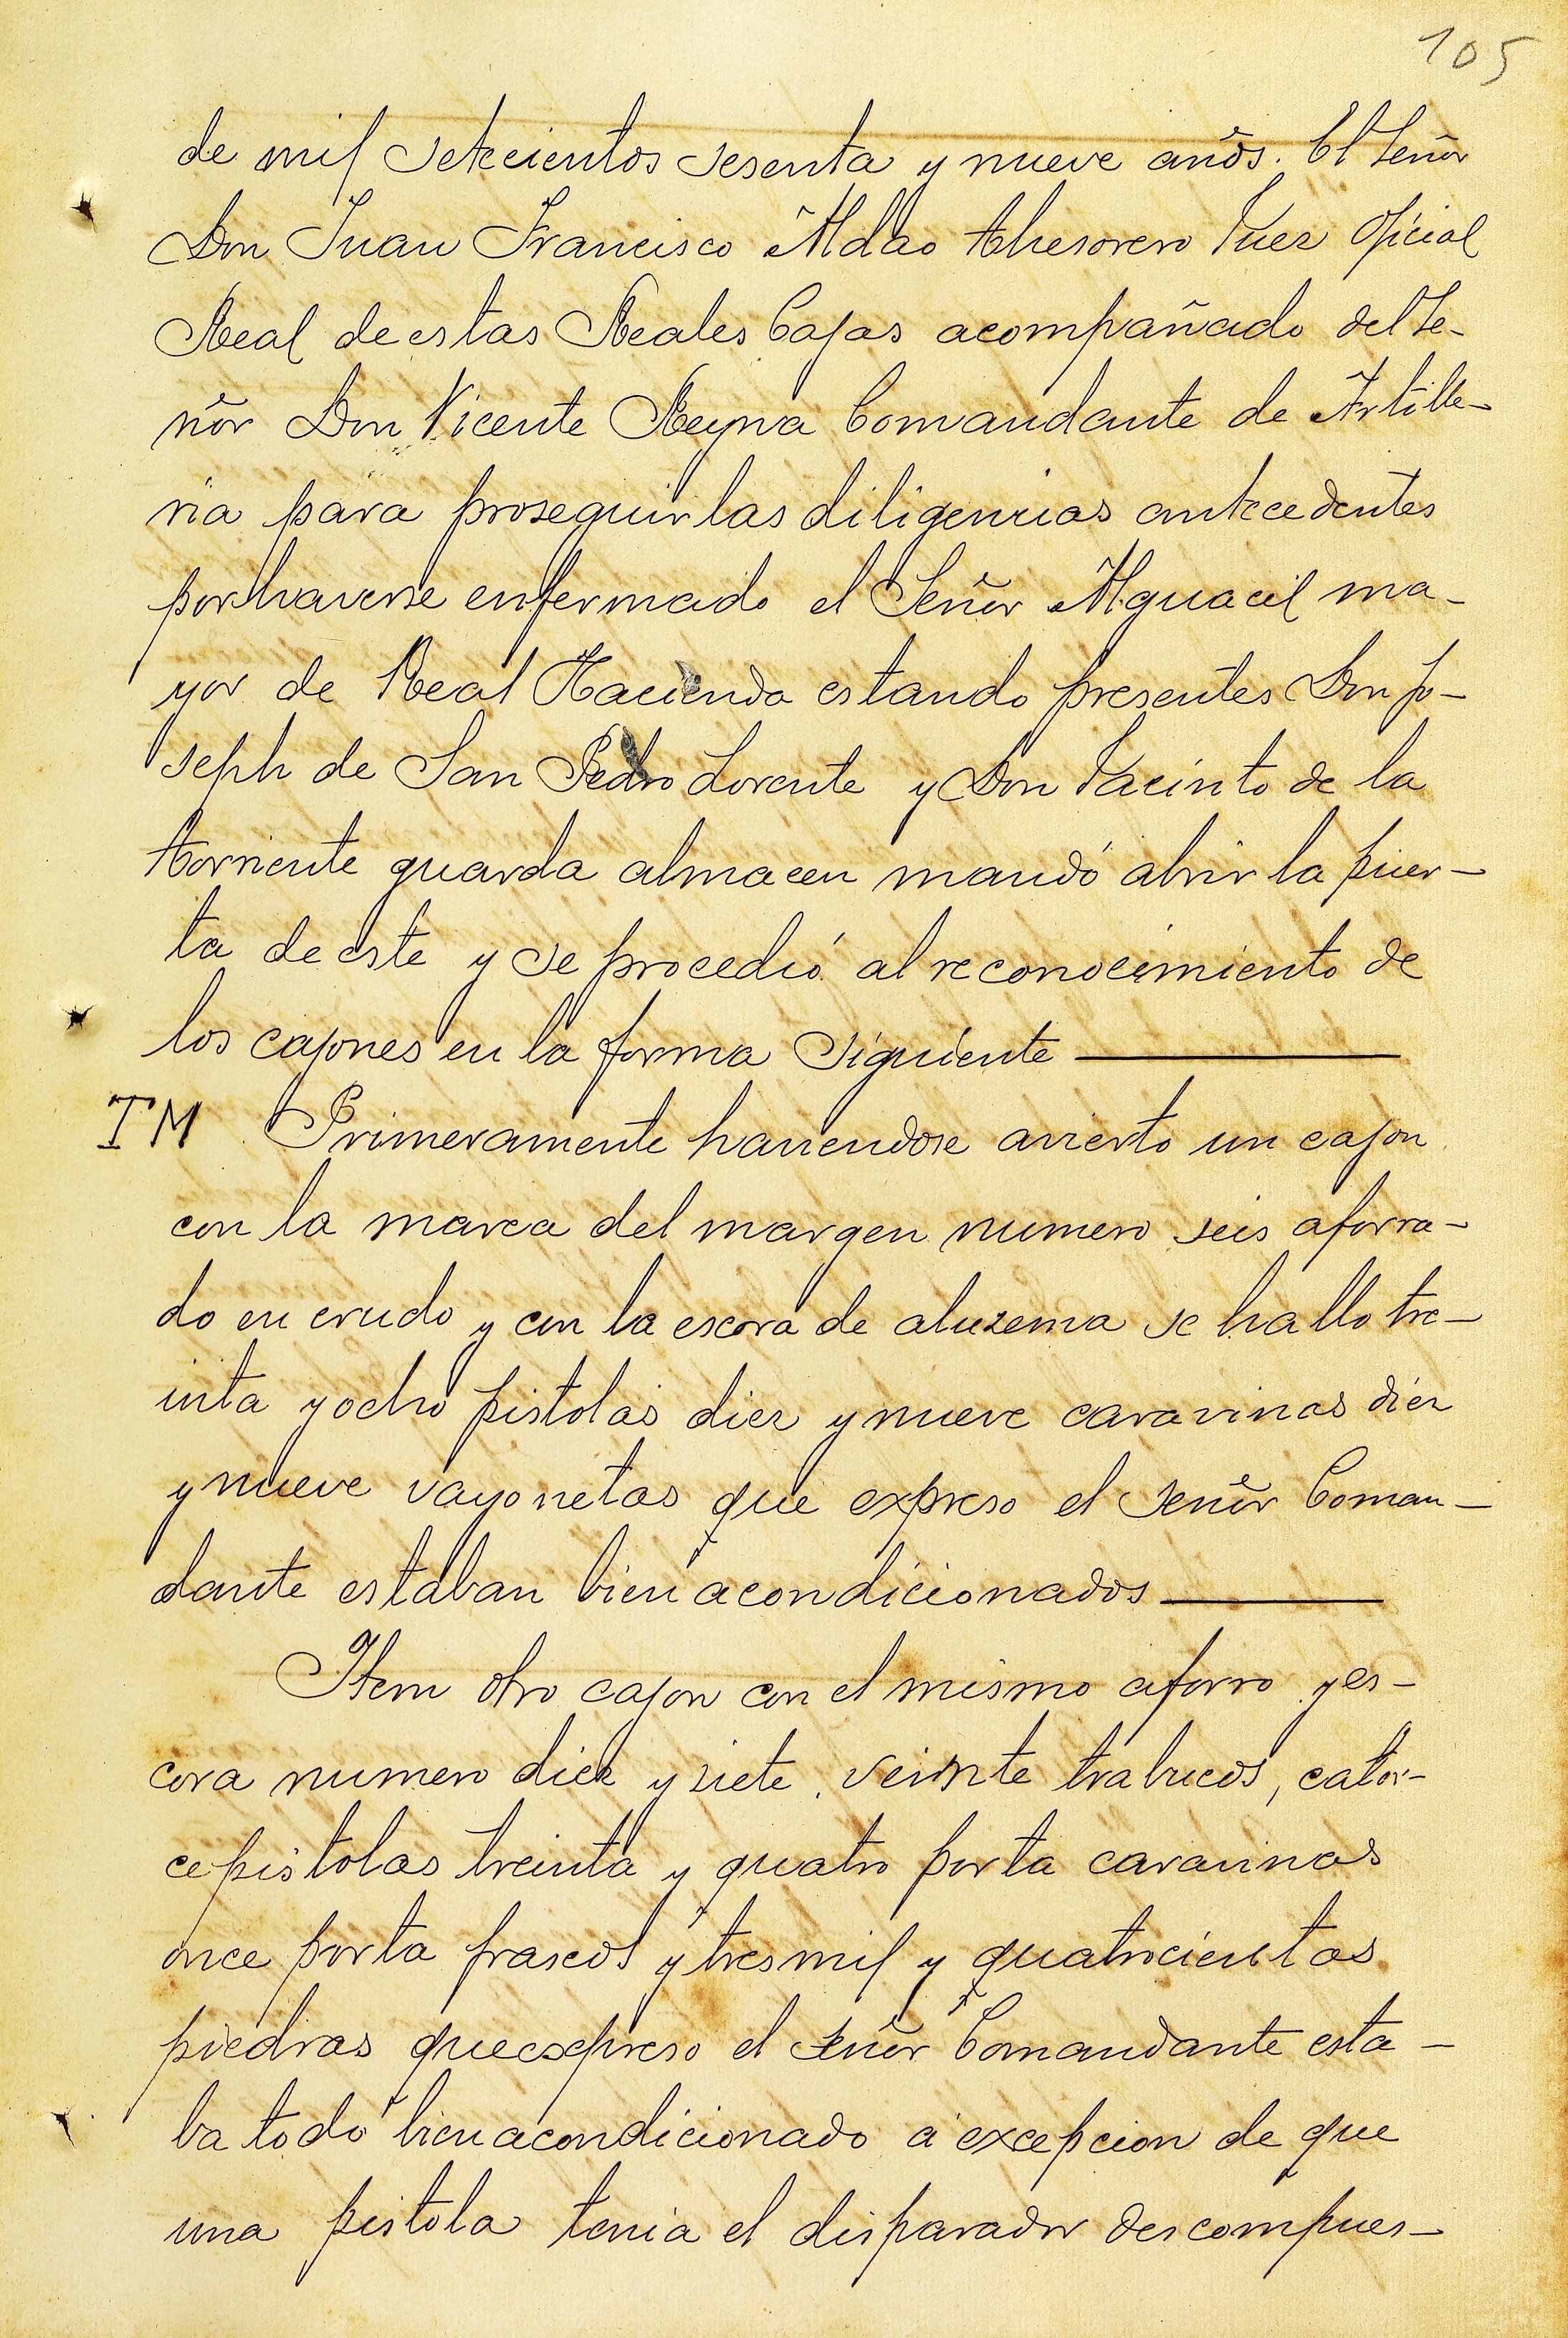 105
de mil setecientos sesenta y nueve años. El Señor
Don Juan Francisco Aldao thesorero Juez Oficial
Real de estas Reales Cajas acompañado del Se-
ñor Don Vicente Reyna Comandante de Artille-
ria para proseguir las diligencias antecedentes
por haverse enfermado el Señor Alguacil ma-
yor de Real Hacienda estando presentes Don Jo-
seph de San Pedro Lorente y Don Jacinto de la
torriente guarda almacen mandó abrir la puer-
ta de este y se procedió al reconocimiento de
los cajones en la forma siguiente
IM Primeramente haviendose avierto un cajon
con la marca del margen numero seis aforra-
do en crudo y con la escora de aluzema se hallo tre-
inta y ocho pistolas diez y nueve caravinas diez
y nueve vayonetas que expreso el Señor Coman-
dante estaban bien acondicionados
Item otro cajon con el mismo aforro y es-
cora numero diez y siete. veinte trabucos, cator-
ce pistolas treinta y quatro porta caravinas
once porta frascos y tres mil y quatrocientas
piedras que expreso el Señor Comandante esta-
ba todo bien acondicionado á excepcion de que
una pistola tenia el disparador descompues-